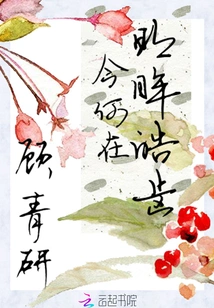 明眸皓齿
今何在
顾青研
云起书院